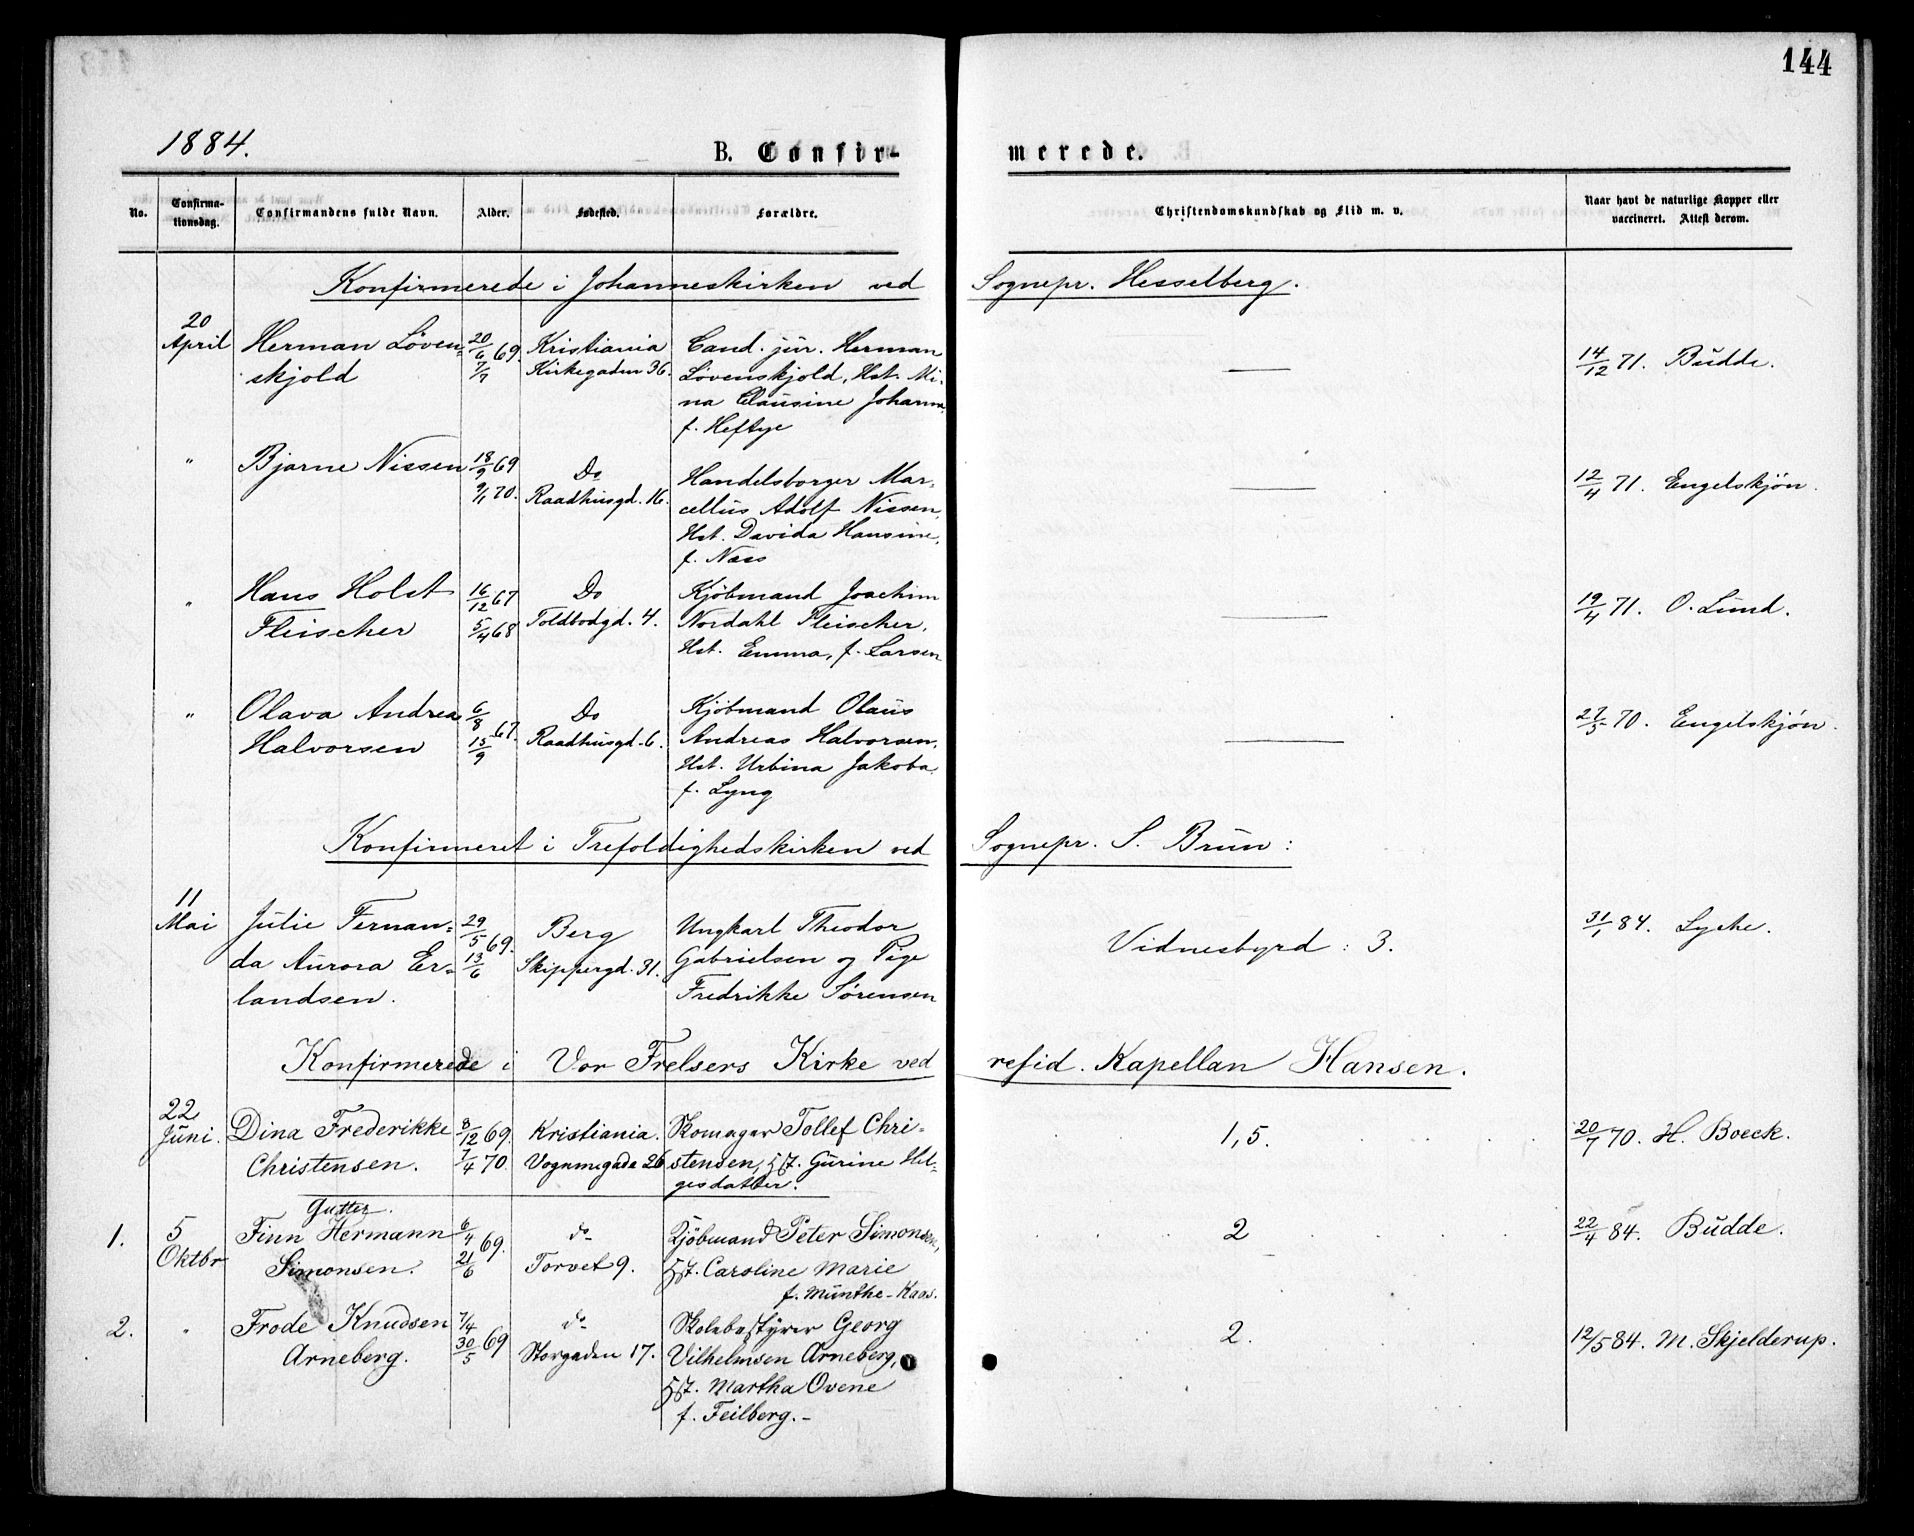 144
1884.
B. Confir-
merede.
No.
Confirma-
tionsdag.
Confirmandens fulde Navn.
Alder.
Fødested.
Forældre.
Christendomskundskab og Flid m. v.
Naar havt de naturlige Kopper eller
vaccineret. Attest derom.
Konfirmerede i Johanneskirken ved Sognepr. Hesselberg.
20
April
Herman Løven-
skjold
20/6 69.
7/9
Kristiania
Kirkegaden 36.
Cand. jur. Herman
Løvenskjold, Hst. Mi-
na Clausine Johanna,
f. Heftye
14/12 71. Budde.
"
Bjarne Nissen
18/9 69
9/1 70.
Do
Raadhusgd. 16.
Handelsborger Mar-
cellus Adolf Nissen,
Hst. Davida Hansine,
f. Næss
12/4 71. Engelskjøn.
"
Hans Holst
Fleischer
16/12 67
5/4 68
Do
Toldbodgd. 4.
Kjøbmand Joachim
Nordahl Fleischer,
Hst. Emma, f. Larsen
19/4 71. O. Lund.
"
Olava Andrea
Halvorsen
6/8 67.
15/9
Do
Raadhusgd. 6.
Kjøbmand Olaus
Andreas Halvorsen,
Hst. Urbina Jakoba,
f. Lyng
27/5 70. Engelskjøn.
Konfirmeret i Trefoldighedskirken ved Sognepr. S. Brun:
11
Mai
Julie Fernan-
da Aurora Er-
landsen.
29/5 69.
13/6
Berg
Skippergd. 31.
Ungkarl Theodor
Gabrielsen og Pige
Fredrikke Sørensen
Vidnesbyrd: 3.
31/1 84. Lyche.
Konfirmerede i Vor Frelsers Kirke ved resid. Kapellan Hansen.
22
Juni.
Dina Frederikke
Christensen.
8/12 69.
7/4 70
Kristiania.
Vognmgade 26
Skomager Tollef Chri-
stensen, Hst. Gurine Hel-
gesdatter.
1,5.
20/7 70. H. Boeck.
Gutter.
1.
5
Oktbr
Finn Hermann
Simonsen.
6/4 69.
21/6
do
Torvet 9.
Kjøbmand Peter Simonsen,
Hst. Caroline Marie
f. Munthe-Kaas.
2
22/4 84. Budde.
2.
"
Frode Knudsen
Arneberg.
7/4
30/5 69
do
Storgaden 17.
Skolebestyrer Georg
Vilhelmsen Arneberg,
Hst. Martha Ovene
f. Feilberg.-
2.
12/5 84. M. Skjelderup.